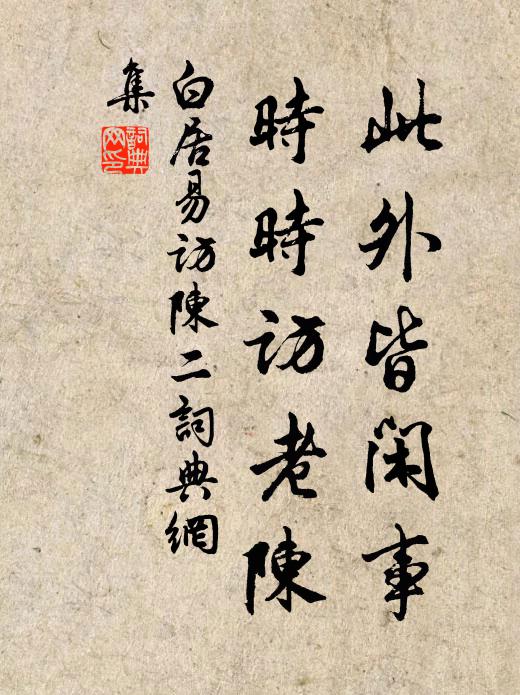 此外皆閑事
時時訪老陳
白居易訪陳二詞典網
集
詞典網印